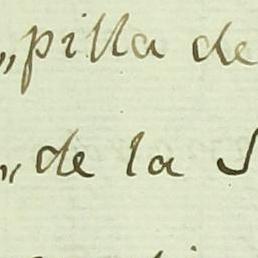 „pilla de
„de la S